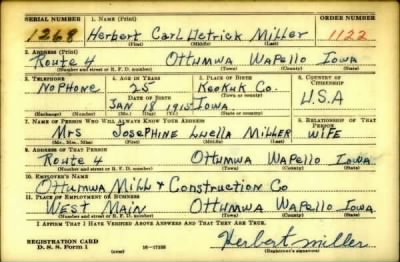 SERIAL NUMBER 1. NAME (Print) ORDER NUMBER
1268 Herbert Carl Detrick Miller 1122
(First) (Middle) (Last)
2. ADDRESS (Print)
Route 4 Ottumwa Wapello Iowa
(Number and street or R. F. D. number) (Town) (County) (State)
3. TELEPHONE 4. AGE IN YEARS 5. PLACE OF BIRTH 6. COUNTRY OF CITIZENSHIP
No Phone 25 Keokuk Co.
DATE OF BIRTH (Town or county) U.S.A
Jan 18 1915 Iowa
7. NAME OF PERSON WHO WILL ALWAYS KNOW YOUR ADDRESS 8. RELATIONSHIP OF THAT PERSON
Mrs Josephine Luella Miller Wife
9. ADDRESS OF THAT PERSON
Route 4 Ottumwa Wapello Iowa
(Number and street or R. F. D. number) (Town) (County) (State)
10. EMPLOYER'S NAME
Ottumwa Mill & Construction Co
11. PLACE OF EMPLOYMENT OR BUSINESS
West Main Ottumwa Wapello Iowa
(Number and street or R. F. D. number) (Town) (County) (State)
I AFFIRM THAT I HAVE VERIFIED ABOVE ANSWERS AND THAT THEY ARE TRUE.
REGISTRATION CARD
D. S. S. Form 1 (over) 16-17105 Herbert Miller
(Registrant's signature)